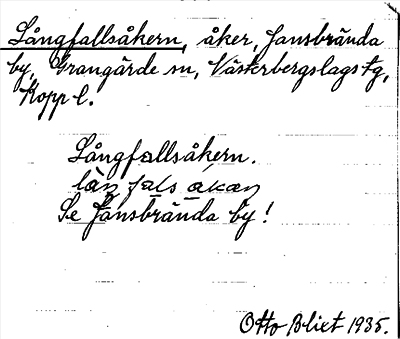 Långfallsåkern, åker, Jansbrända
by, Grangärde sn, Västerbergslags tg,
Kopp l.
Långfallsåkern.
làŋ fals åkan
Se Jansbrända by!
Otto Blixt 1935.